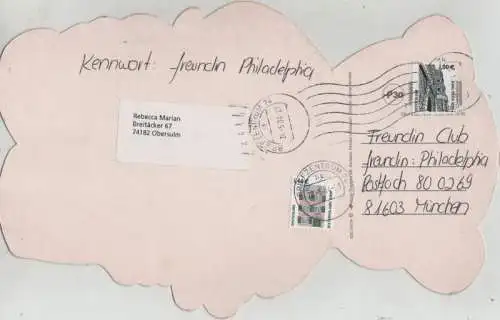 Kennwort: freundin Philadelphia
Rebecca Marian
Breitäcker 67
74182 Obersulm
BRIEFZENTRUM 74
Freundin Club
freundin: Philadelphia
Postfach 80 02 69
81603 München